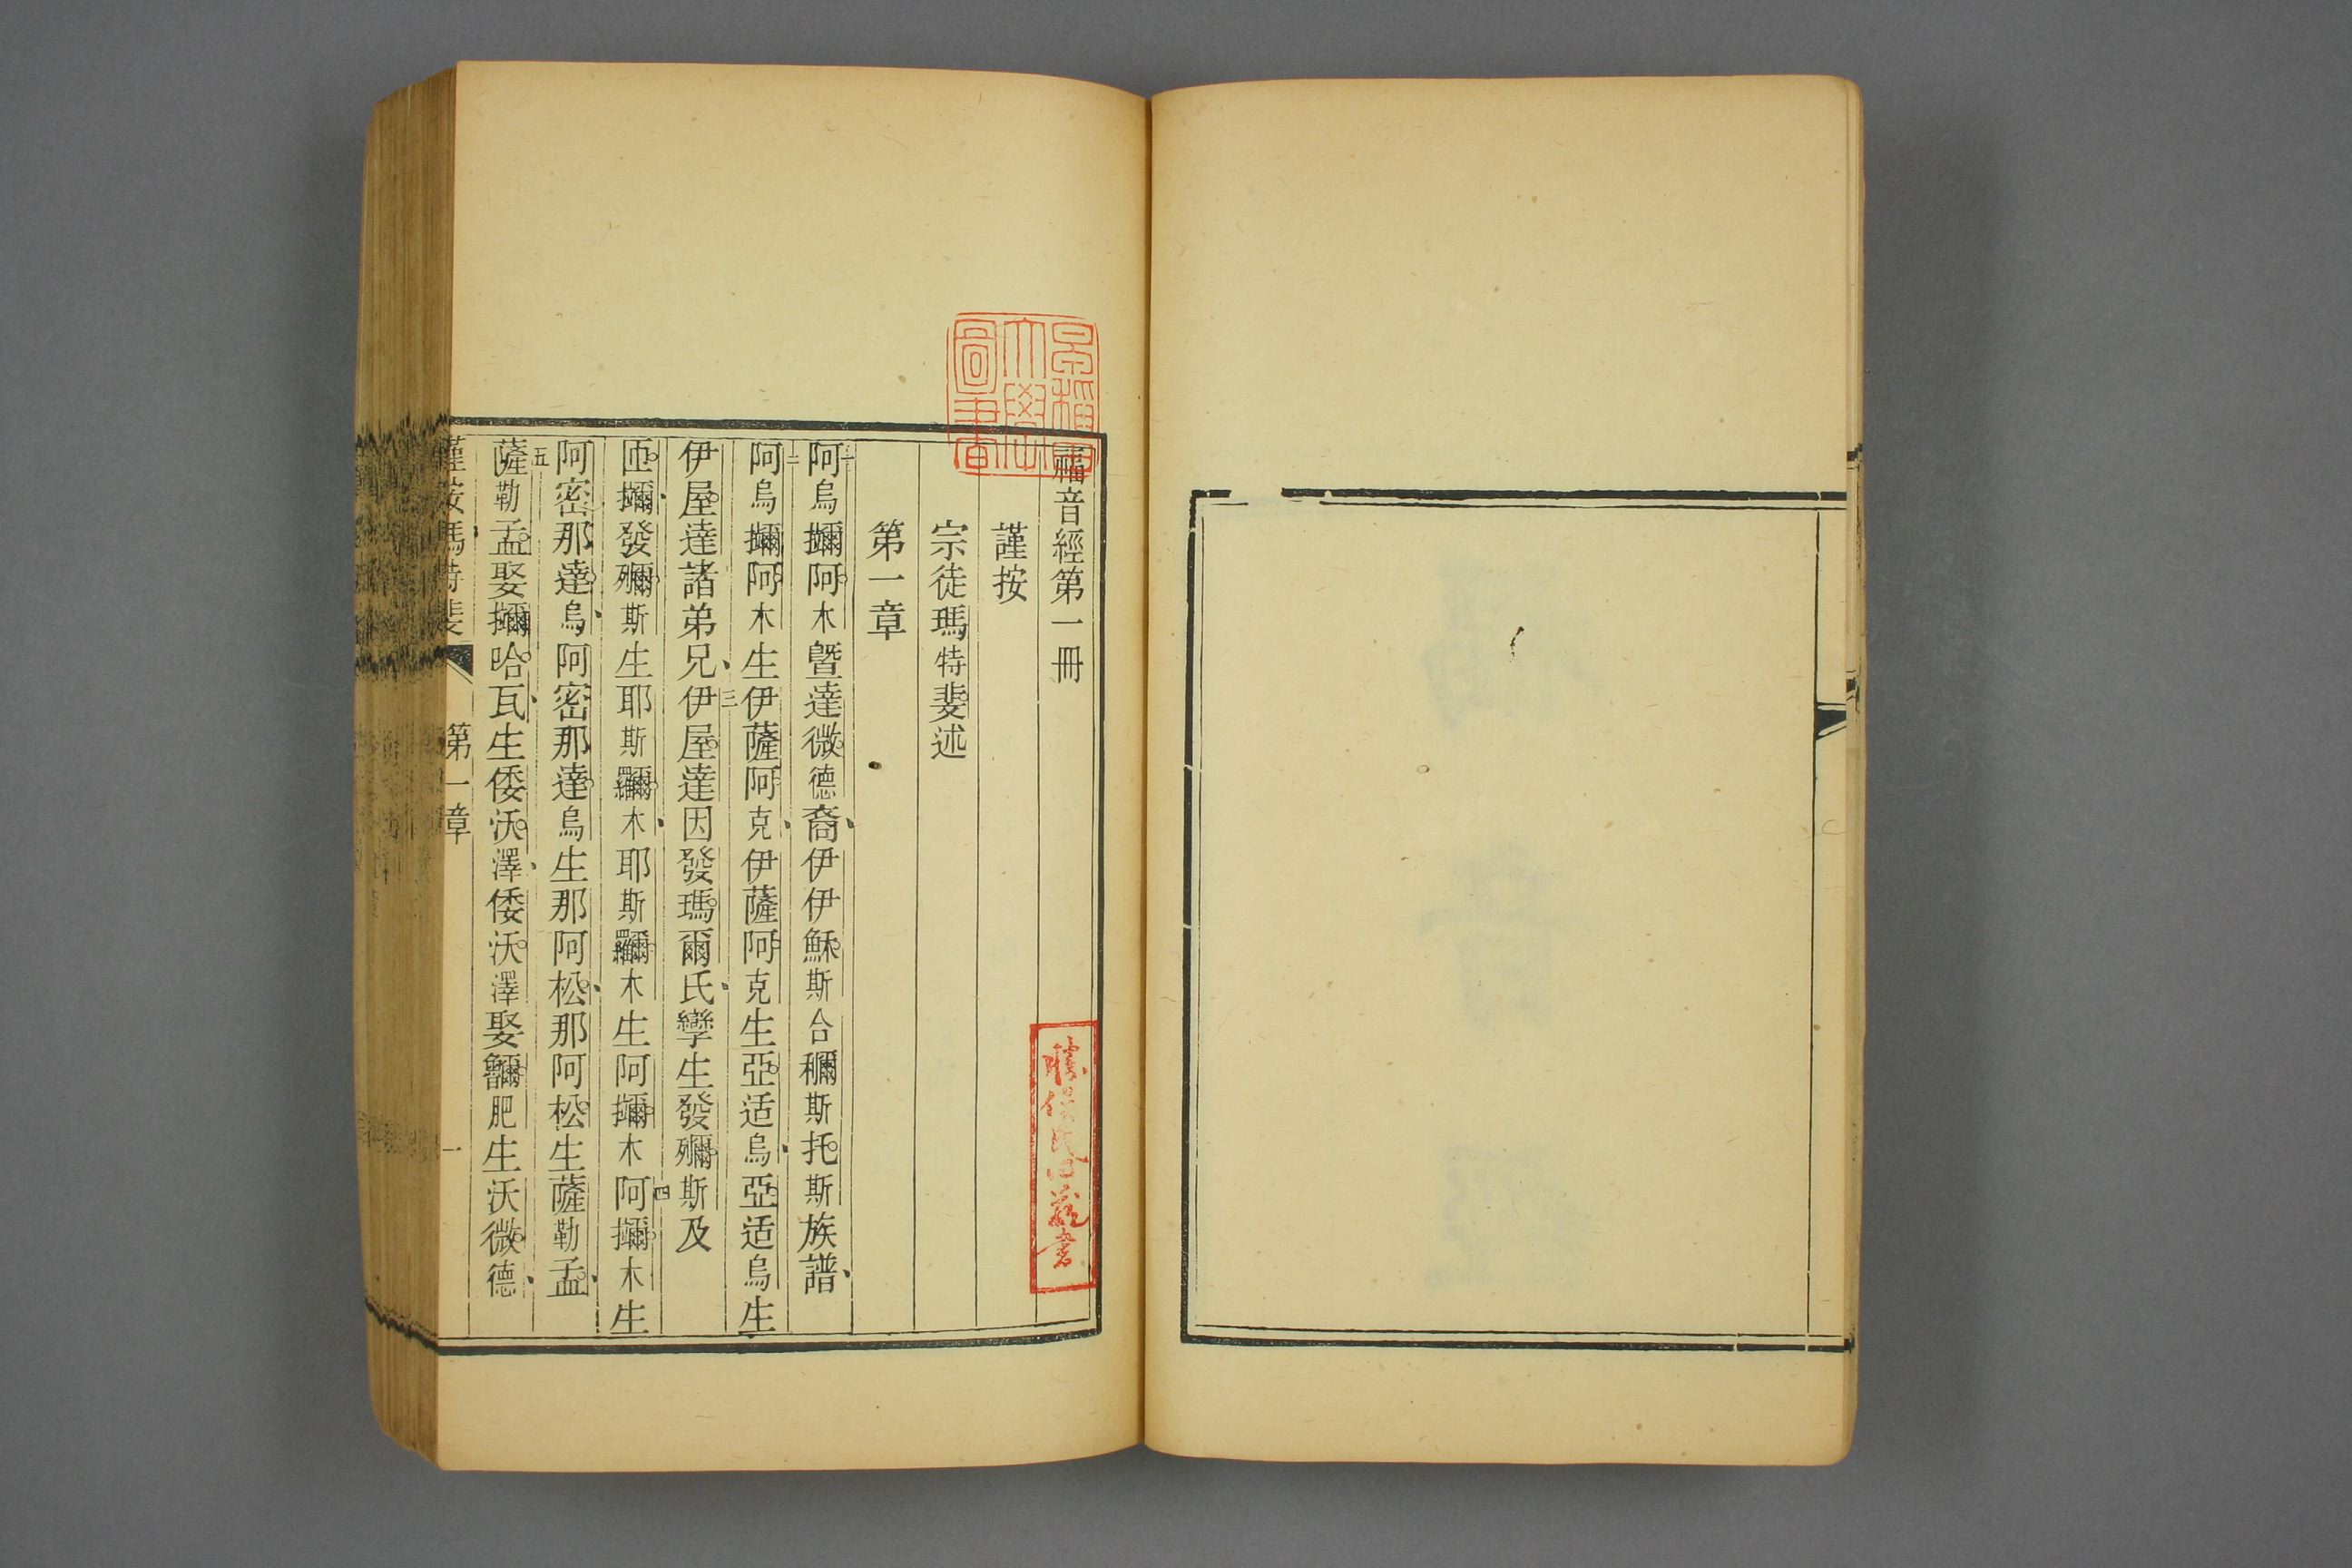 早稻田
大學
圖書
福音經第一冊
謹按
宗徒瑪特斐述
第一章
一阿烏阿木暨達微德裔伊伊穌斯合斯托斯族譜
二阿烏阿木生伊薩阿克伊薩阿克生亞适烏亞适烏生
伊屋達諸弟兄三伊屋達因發瑪爾氏孿生發斯及
發斯生耶斯木耶斯木生阿木四阿木生
阿密那達烏阿密那達烏生那阿松那阿松生薩勒孟
五薩勒孟娶哈瓦生倭沃澤倭沃澤娶肥生沃微德
謹按瑪特斐 第一章 一